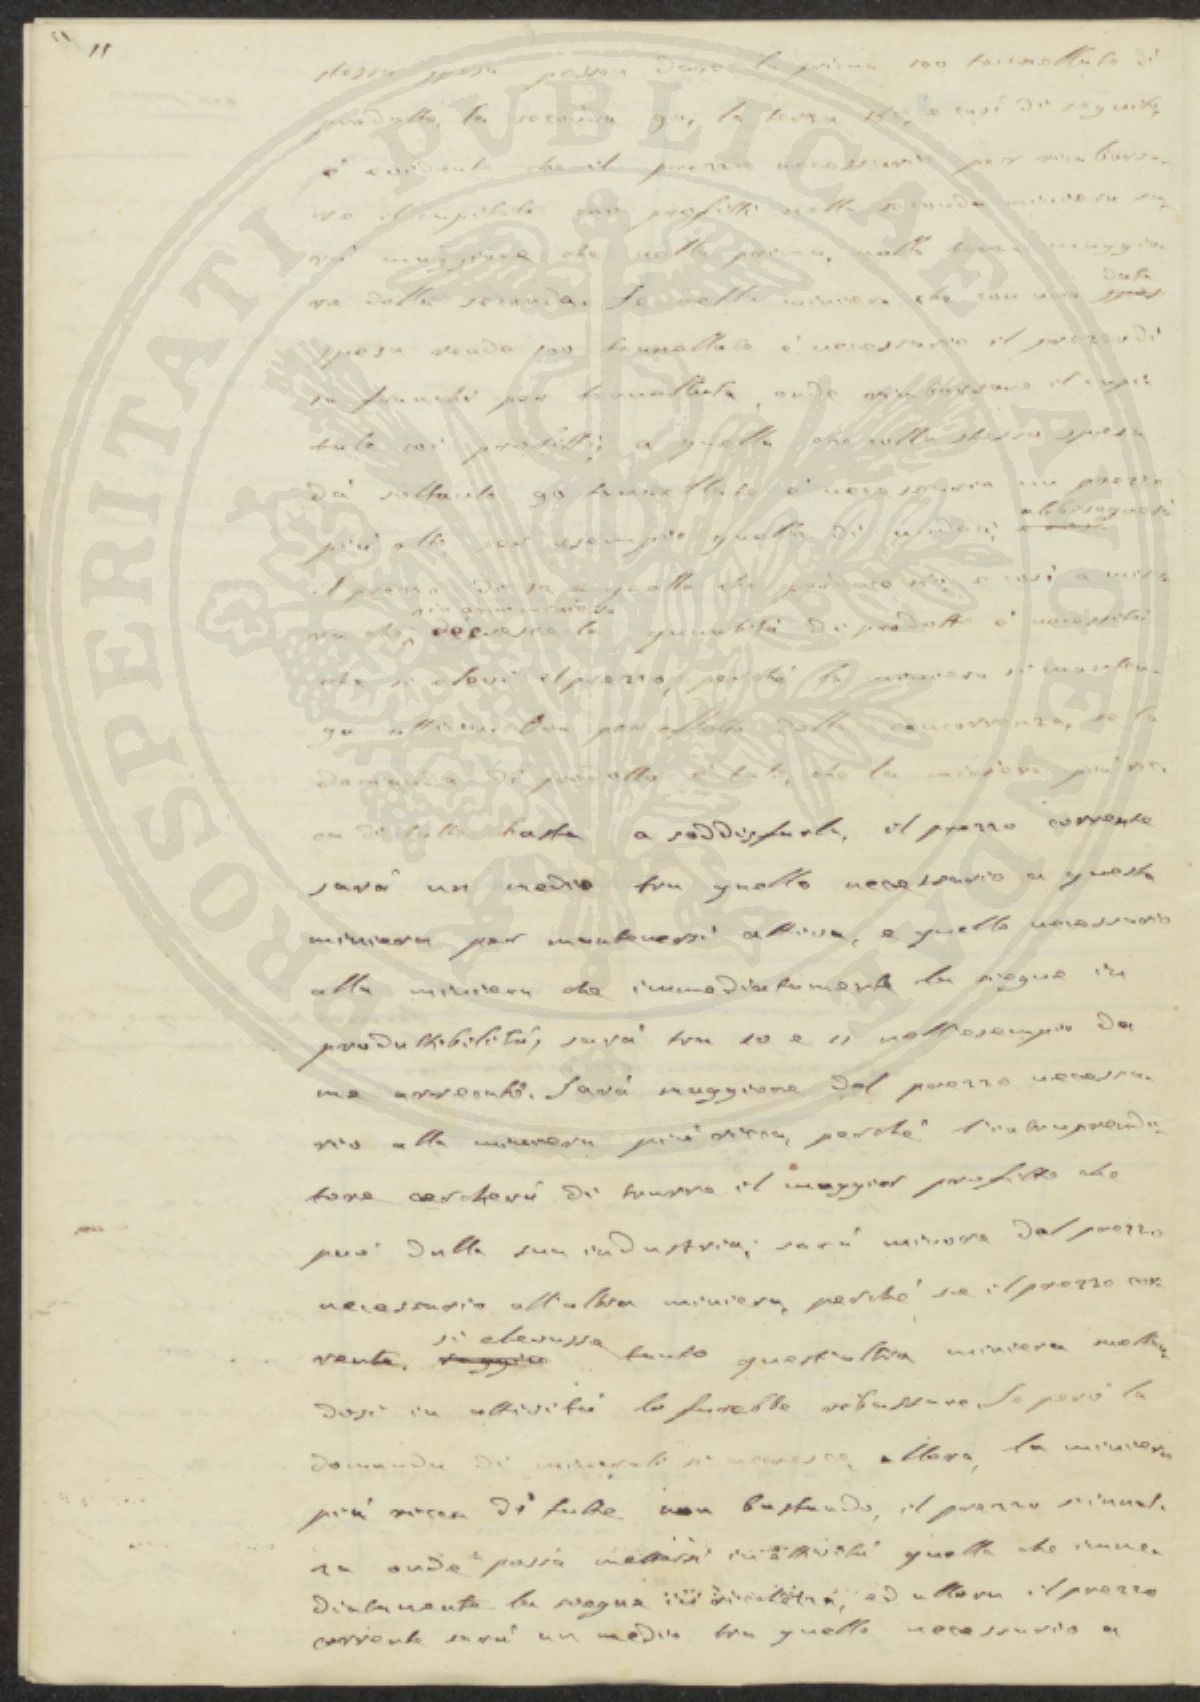 11
stessa spesa possa dare la prima 100 tonnellate di
prodotto, la seconda 90, la terza 80, e così di seguito,
è evidente che il prezzo necessario per rimborsa-
re il capitale coi profitti nella seconda miniera sa-
rà maggiore che nella prima, nella terza maggio-
re della seconda. Se nella miniera che con una data
spesa rende 100 tonnellate è necessario il prezzo di
10 franchi per tonnellata, onde rimborsare il capi-
tale coi profitti; a quella che colla stessa spesa
dà soltanto 90 tonnellate è necessario un prezzo
più alto per esempio quello di undici; abbisognerà
il prezzo di 12 a quella che produce 80; e così a misu-
ra che in ogni miniera decresce la quantità di prodotto è necessità
che si elevi il prezzo, perché la miniera si manten-
ga attiva. Ora per effetto della concorrenza, se la
domanda di prodotto è tale, che la miniera più ric-
ca di tutte basta a soddisfarla, il prezzo corrente
sarà un medio tra quello necessario a questa
miniera per mantenersi attiva, e quello necessario
alla miniera che immediatamente la segue in
produttibilità, sarà tra 10 e 11 nell'esempio da
me arrecato. Sarà maggiore del prezzo necessa-
rio alla miniera più ricca, perché l'intraprendi-
tore cercherà di trarre il maggior profitto che
può dalla sua industria; sarà minore del prezzo
necessario all'altra miniera, perché se il prezzo cor-
rente, si elevasse tanto quest'altra miniera metten-
dosi in attività lo farebbe ribassare. Se però la
domanda di minerale si accresce, allora, la miniera
più ricca di tutte non bastando, il prezzo s'innal-
za onde possa mettersi in attività quella che imme-
diatamente la segue in ricchezza, ed allora il prezzo
corrente sarà un medio tra quello necessario a
PROSPERITATI PUBLICAE AUGENDAE